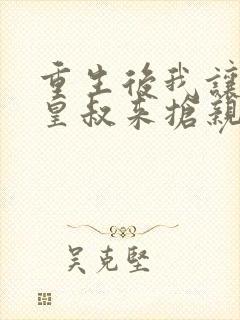 重生後我讓
皇叔来搶親
吴克堅